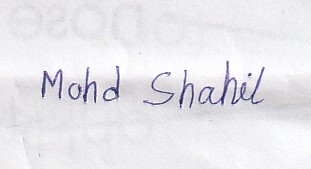 Mohd Shahil